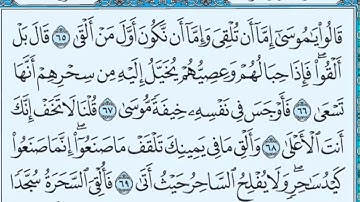 قَالُوا۟ يَـٰمُوسَىٰٓ إِمَّآ أَن تُلْقِىَ وَإِمَّآ أَن نَّكُونَ أَوَّلَ مَنْ أَلْقَىٰ ٦٥ قَالَ بَلْ
أَلْقُوا۟ ۖ فَإِذَا حِبَالُهُمْ وَعِصِيُّهُمْ يُخَيَّلُ إِلَيْهِ مِن سِحْرِهِمْ أَنَّهَا
تَسْعَىٰ ٦٦ فَأَوْجَسَ فِى نَفْسِهِۦ خِيفَةً مُّوسَىٰ ٦٧ قُلْنَا لَا تَخَفْ إِنَّكَ
أَنتَ ٱلْأَعْلَىٰ ٦٨ وَأَلْقِ مَا فِى يَمِينِكَ تَلْقَفْ مَا صَنَعُوٓا۟ ۖ إِنَّمَا صَنَعُوا۟
كَيْدُ سَـٰحِرٍ ۖ وَلَا يُفْلِحُ ٱلسَّاحِرُ حَيْثُ أَتَىٰ ٦٩ فَأُلْقِىَ ٱلسَّحَرَةُ سُجَّدًا